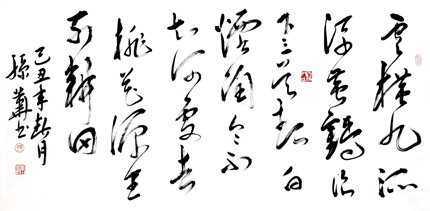 雲横九派
浮黄鶴浪
下三吴起白
烟陶令不
知何處去
桃花源里
可耕田
己丑年月
孫書